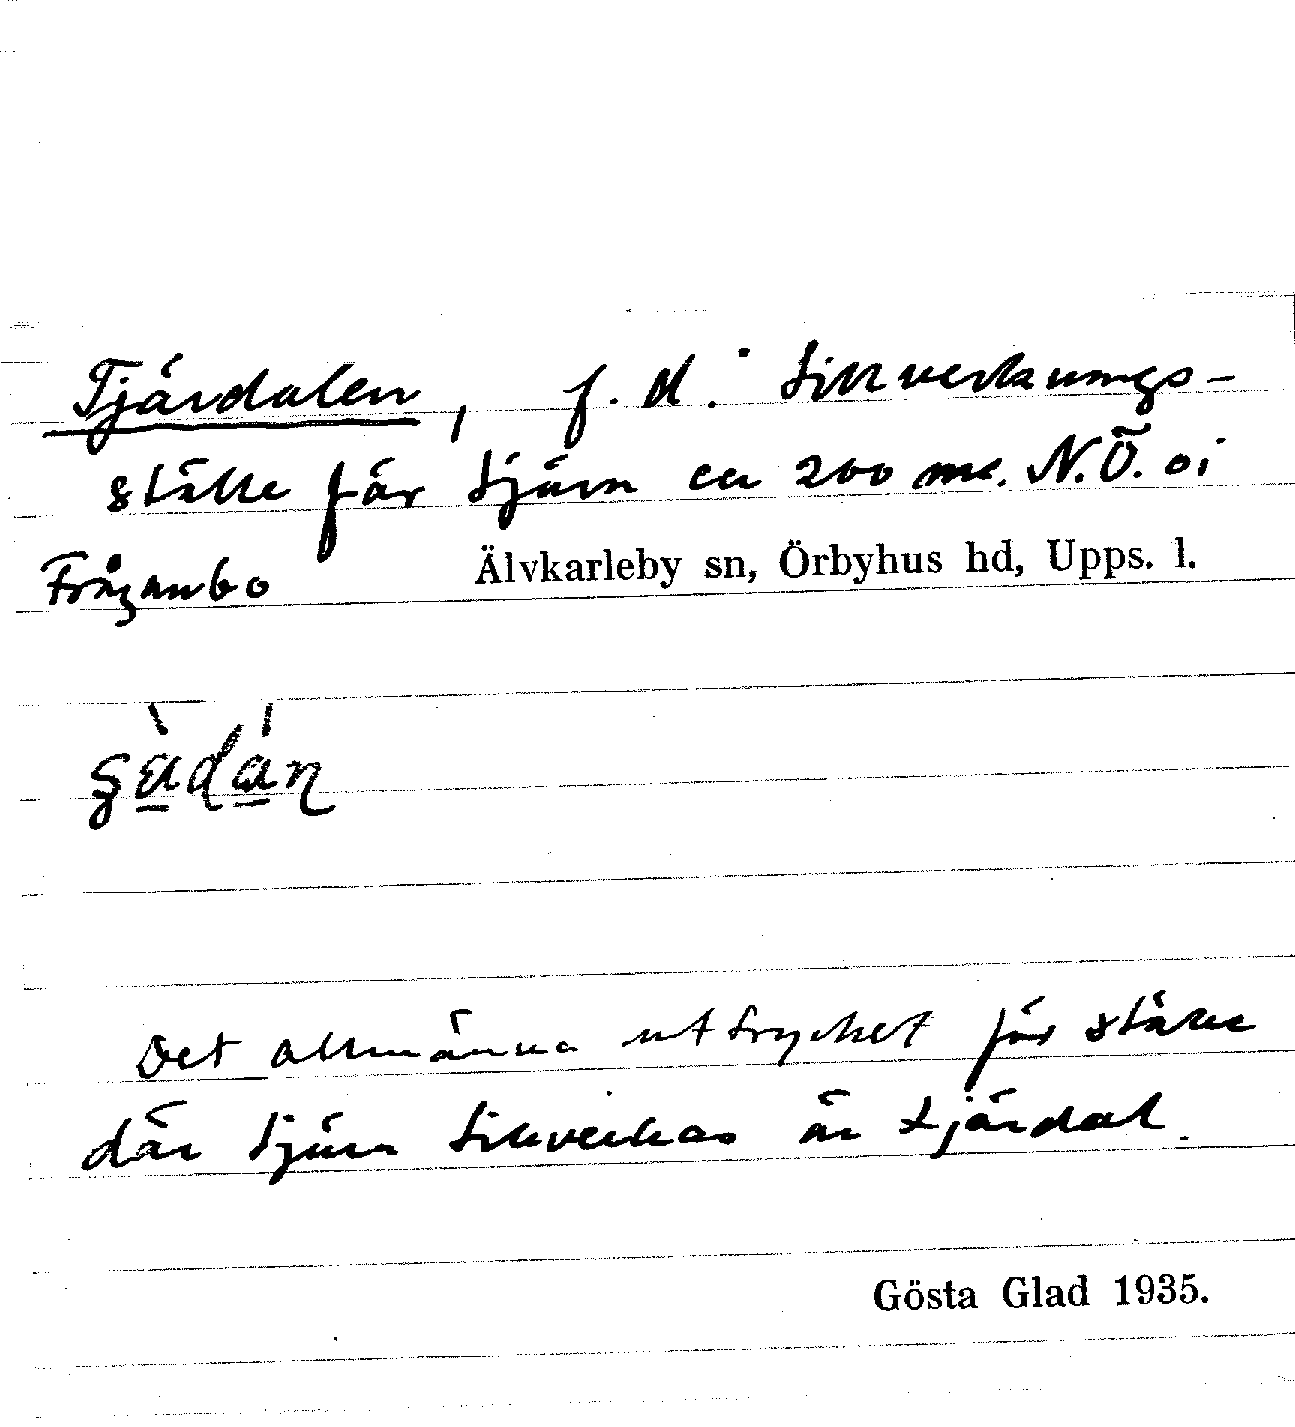 Tjärdalen, f. d. tillverknings-
ställe för tjärn ca 200 m. N.Ö. oi
Fråganbo Älvkarleby sn, Örbyhus hd, Upps. l.
Det allmänna uttrycket för ställe
där tjära tillverkas är tjärdal.
Gösta Glad 1935.